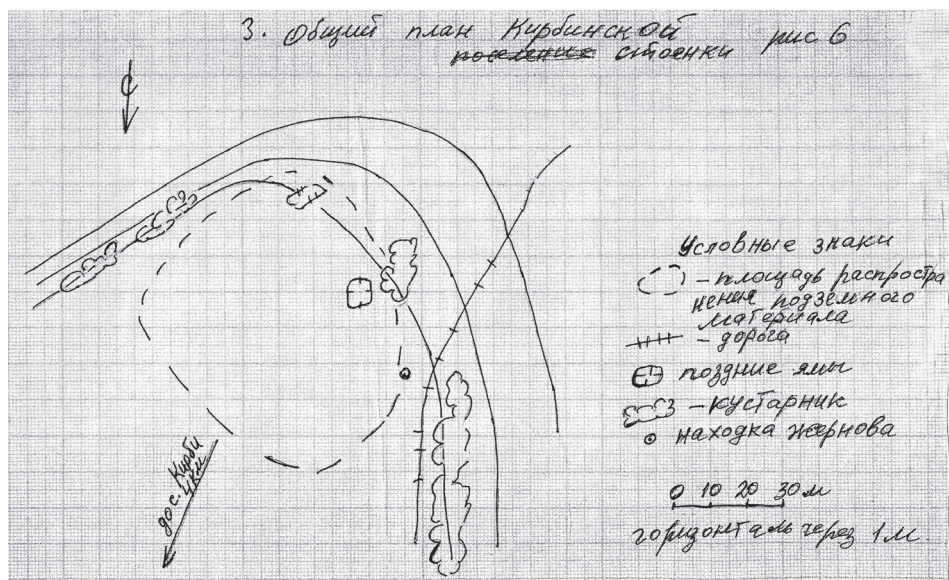 3. Общий план Кирбинской рис 6
поселение стоянки
С
Условные знаки
– площадь распростра
нения подземного
материала
– дорога
поздние ямы
– кустарник
находка жернова
0 10 20 30 м
горизонталь через 1 м.
до с. Кирби
4 км